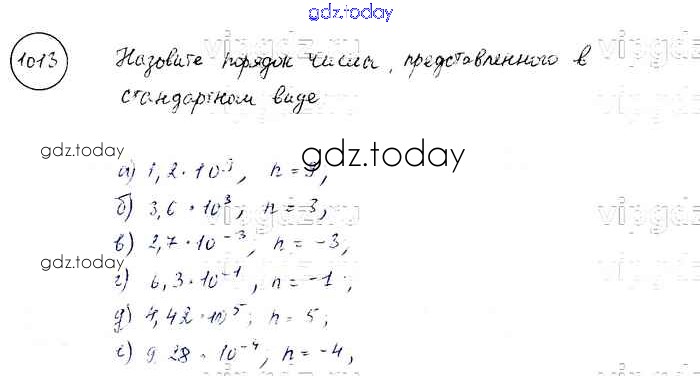 gdz.today
1013 Назовите порядок числа, представленного в
стандартном виде
gdz.today
gdz.today
а) 1,2 · 10⁹, n = 9,
б) 3,6 · 10³, n = 3,
vipgdz.ru
в) 2,7 · 10⁻³; n = -3,
gdz.today
г) 6,3 · 10⁻¹, n = -1;
д) 4,42 · 10⁵; n = 5;
е) 9,28 · 10⁻⁴; n = -4,